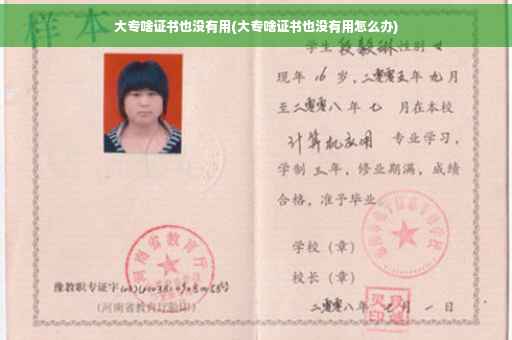 大专啥证书也没有用(大专啥证书也没有用怎么办)
样本
学生段毅琳性别女
现年16岁，二零零五年九月
至二零零八年七月在本校
计算机应用 专业学习，
学制三年，修业期满，成绩
合格，准予毕业。
学校（章）
校长（章）
二零零八年七月一日
河南省教育厅
豫教职专证字
(河南省教育厅验印)